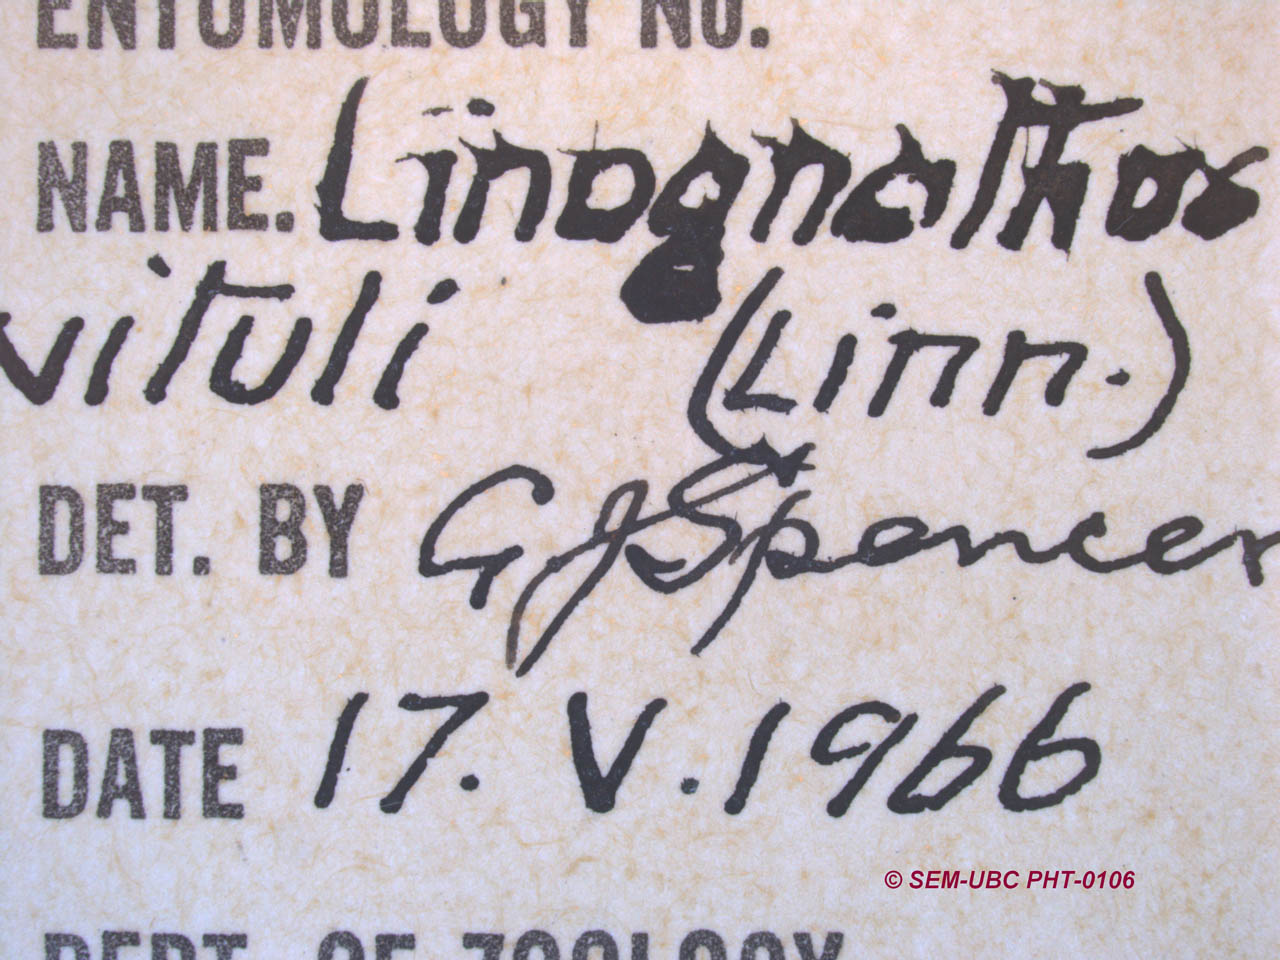 ENTOMOLOGY NO.
NAME. Linognathus
vituli (Linn.)
DET. BY G J Spencer
DATE 17. V. 1966
© SEM-UBC PHT-0106
DEPT. OF ZOOLOGY